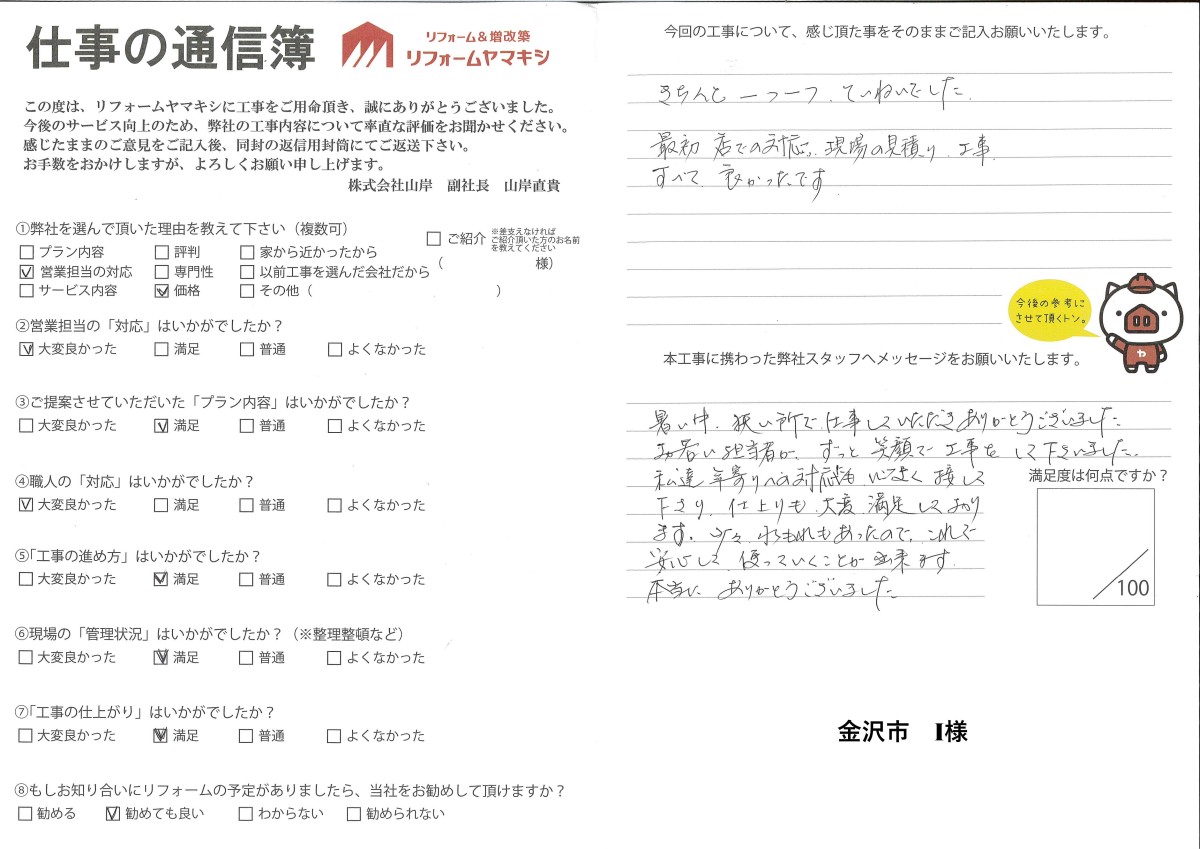 仕事の通信簿
リフォーム&増改築
リフォームヤマキシ
この度は、リフォームヤマキシに工事をご用命頂き、誠にありがとうございました。
今後のサービス向上のため、弊社の工事内容について率直な評価をお聞かせください。
感じたままのご意見をご記入後、同封の返信用封筒にてご返送下さい。
お手数をおかけしますが、よろしくお願い申し上げます。
株式会社山岸 副社長 山岸直貴
①弊社を選んで頂いた理由を教えて下さい（複数可）
□プラン内容 □評判 □家から近かったから
☑営業担当の対応 □専門性 □以前工事を選んだ会社だから
□サービス内容 ☑価格 □その他（ ）
□ご紹介 ※差支えなければ
ご紹介頂いた方のお名前
を教えてください
（ 様）
②営業担当の「対応」はいかがでしたか？
☑大変良かった □満足 □普通 □よくなかった
③ご提案させていただいた「プラン内容」はいかがでしたか？
□大変良かった ☑満足 □普通 □よくなかった
④職人の「対応」はいかがでしたか？
☑大変良かった □満足 □普通 □よくなかった
⑤「工事の進め方」はいかがでしたか？
□大変良かった ☑満足 □普通 □よくなかった
⑥現場の「管理状況」はいかがでしたか？（※整理整頓など）
□大変良かった ☑満足 □普通 □よくなかった
⑦「工事の仕上がり」はいかがでしたか？
□大変良かった ☑満足 □普通 □よくなかった
⑧もしお知り合いにリフォームの予定がありましたら、当社をお勧めして頂けますか？
□勧める ☑勧めても良い □わからない □勧められない
今回の工事について、感じ頂た事をそのままご記入お願いいたします。
きちんと 一つ一つ、ていねいでした
最初 店での対応、現場の見積り、工事
すべて 良かったです
今後の参考に
させて頂くトン。
ヤ
本工事に携わった弊社スタッフへメッセージをお願いいたします。
暑い中、狭い所で仕事していただきありがとうございました
お若い担当者が、ずっと笑顔で工事をして下さいました。
私達年寄りへの対応も 心よく接して
下さり、仕上りも 大変満足しており
ます。少々水もれもあったので、これで
安心して 使っていくことが出来ます
本当に ありがとうございました
満足度は何点ですか？
/100
金沢市 I様